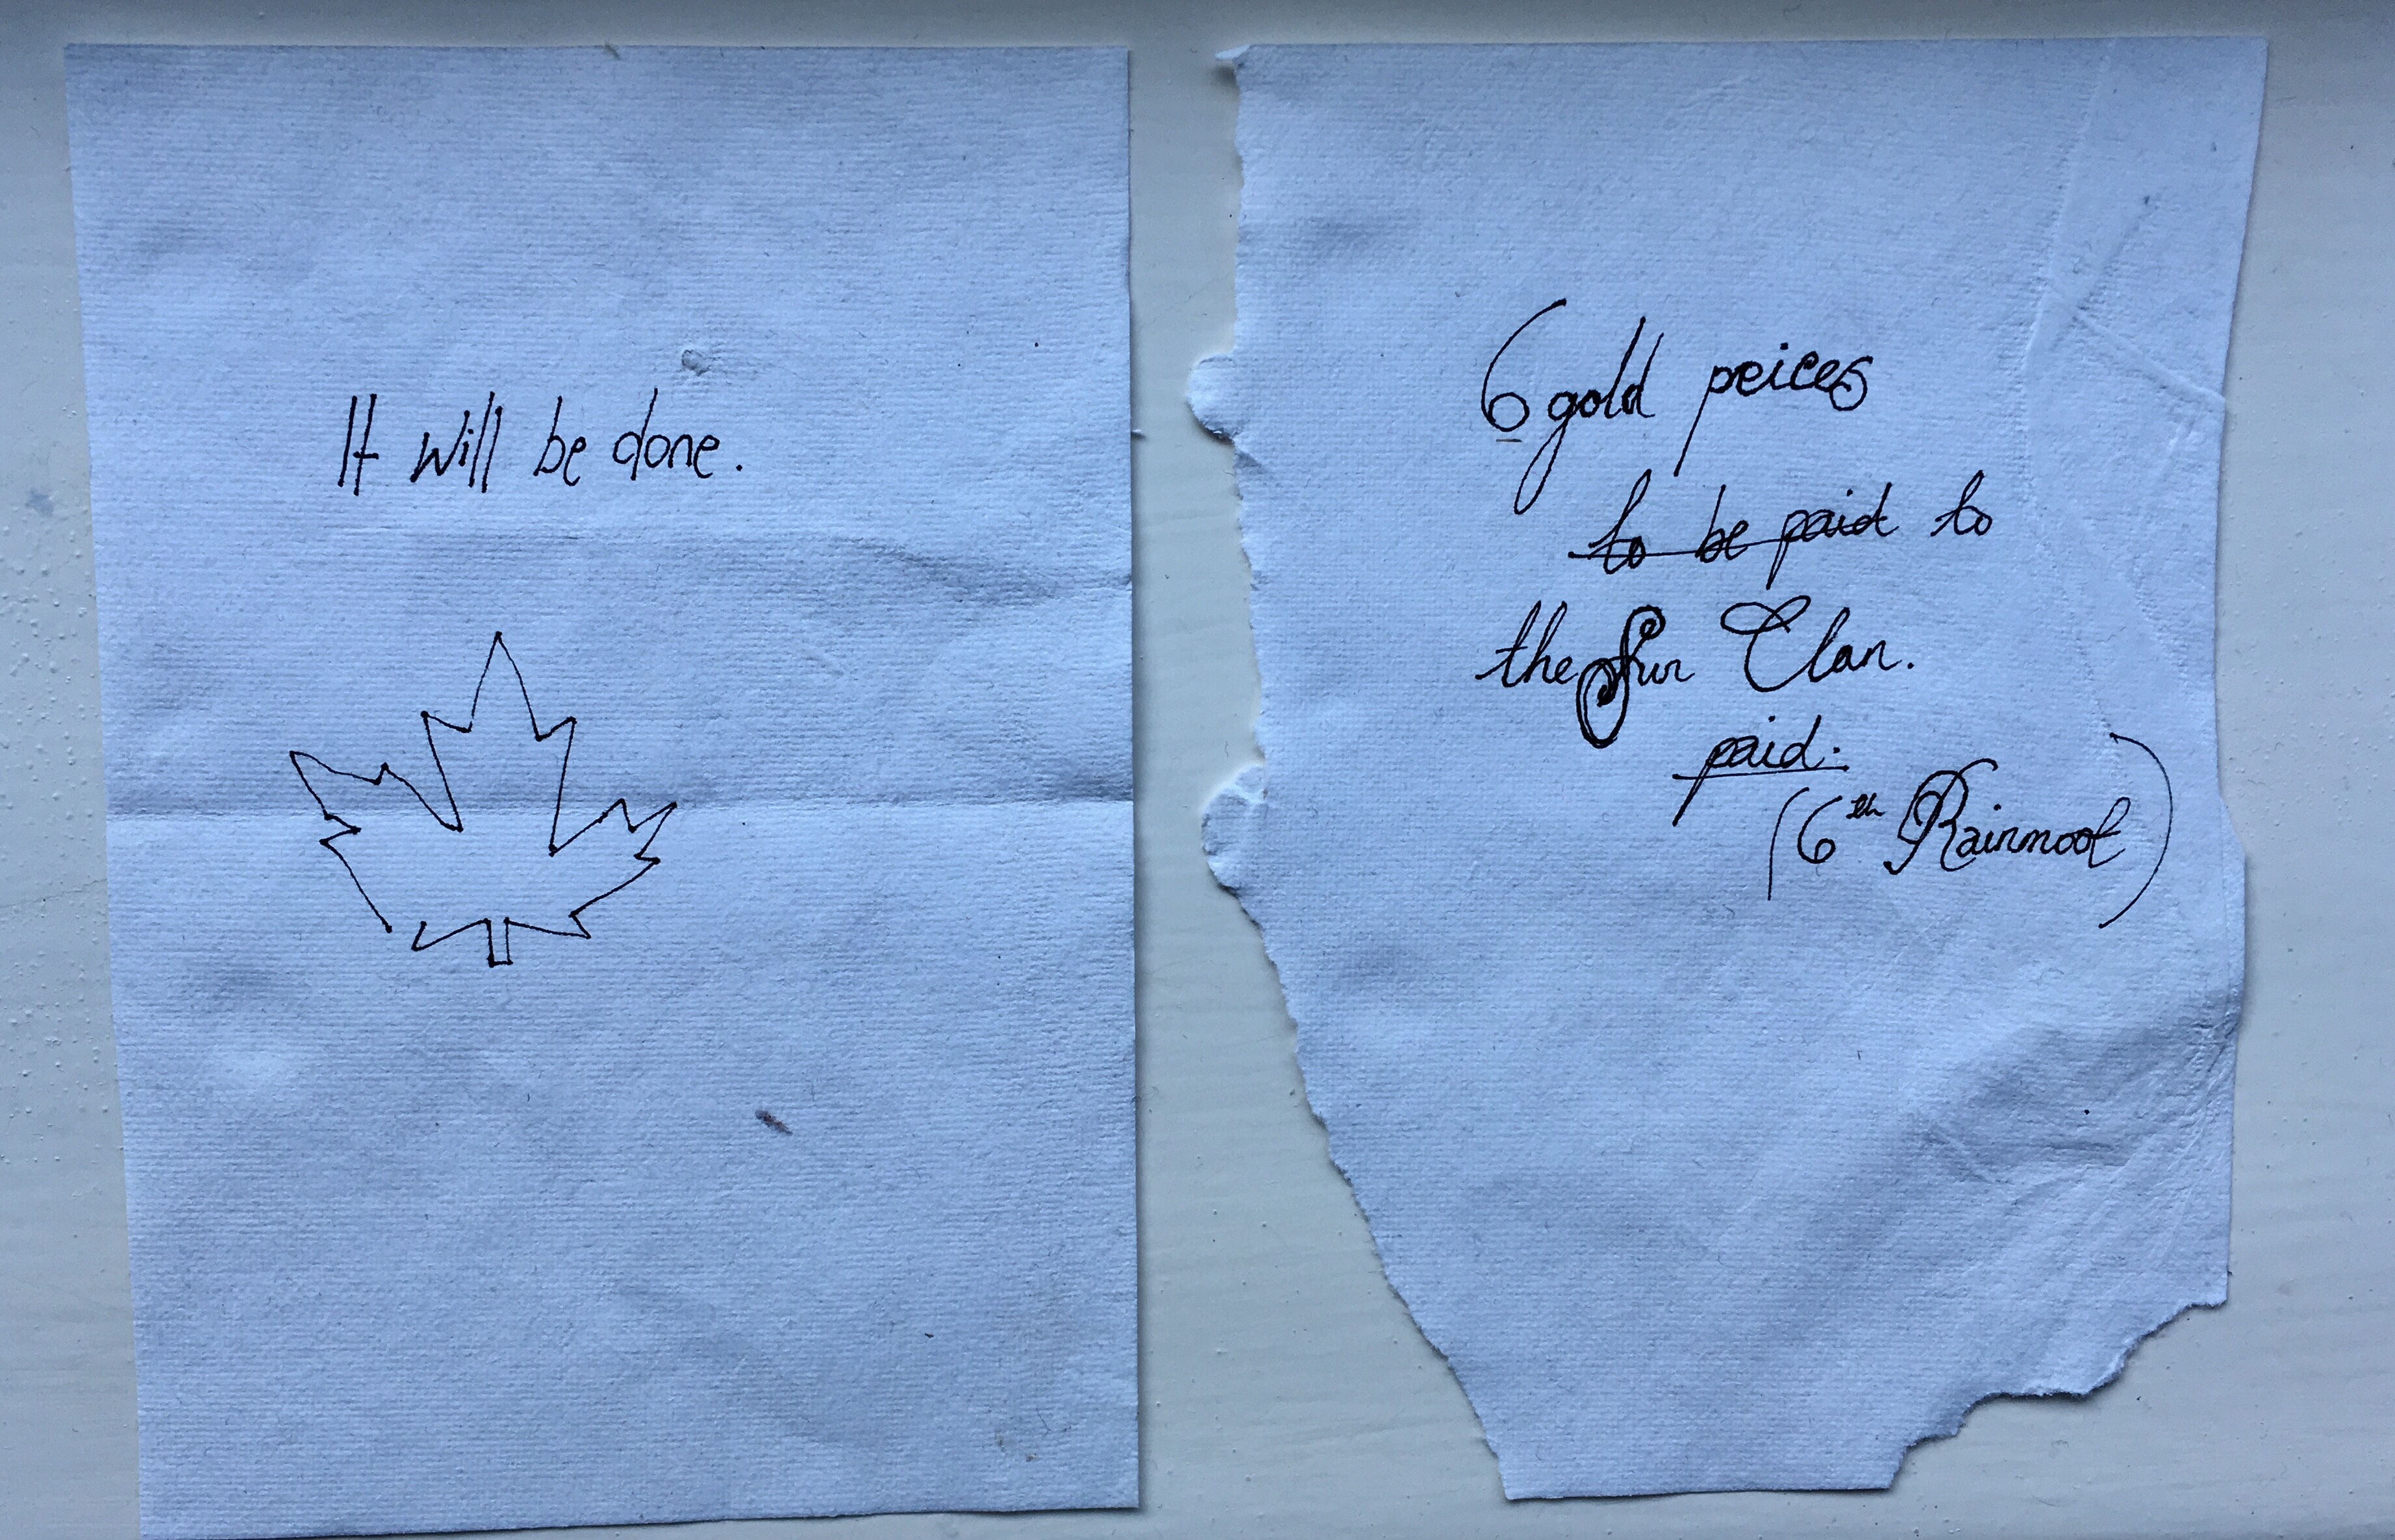 It will be done.
6 gold peices
to be paid to
the Sun Clan.
paid:
(6th Rainmoot)